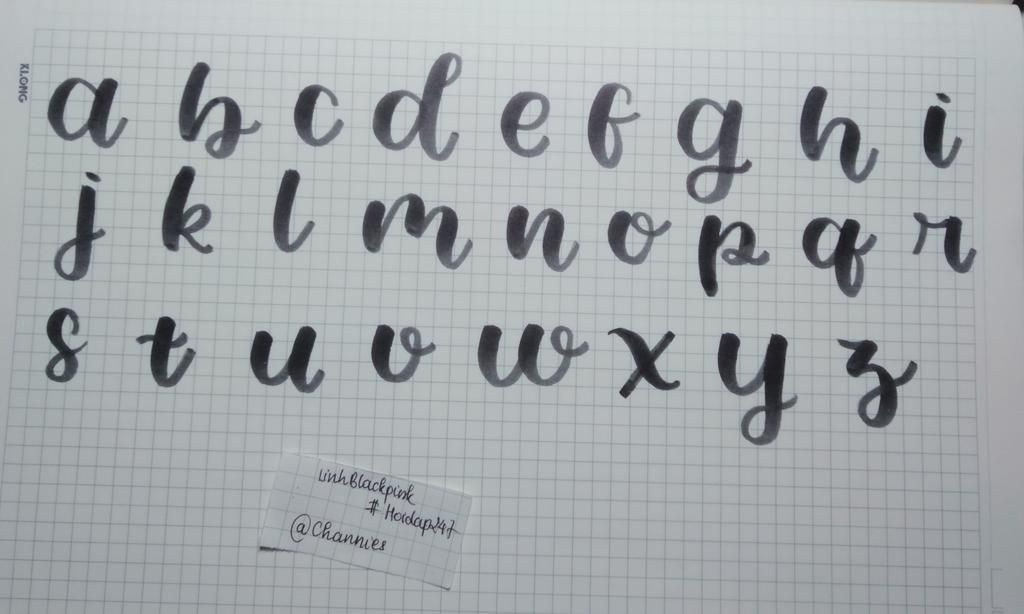 KLONG
a b c d e f g h i
j k l m n o p q r
s t u v w x y z
LinhBlackpink
# Hoidap247
@Channies